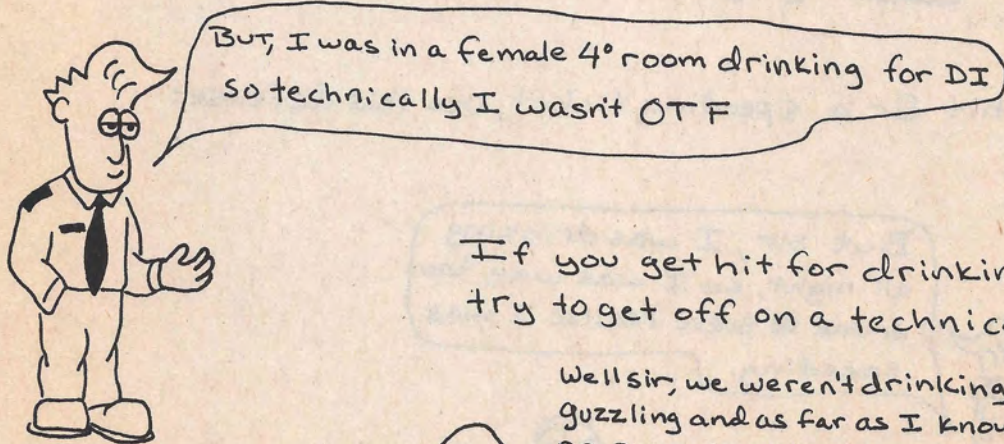 BUT, I was in a female 4° room drinking for DI
so technically I wasn't OTF
If you get hit for drinkin
try to get off on a technic
Well sir, we weren't drinking
guzzling and as far as I know